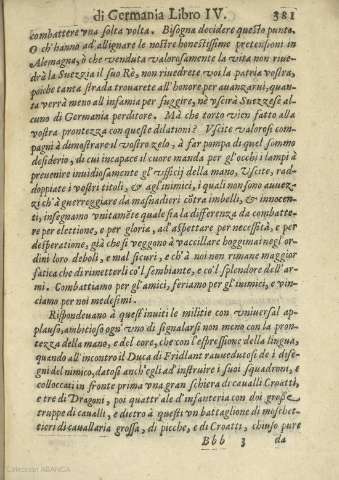 di Germania Libro IV. 381
combattere vna solta volta. Bisogna decidere questo punto.
O ch'hanno ad allignare le nostre honestissime pretensioni in
Alemagna, ò che venduta valorosamente la vita non riue-
drà la Suezzia il suo Rè, non riuedrete voi la patria vostra,
poiche tanta strada trouarete all'honore per auanzarui, quan-
ta verrà meno all'infamia per fuggire, nè vscirà Suezzese al-
cuno di Germania perditore. Mà che torto vien fatto alla
vostra prontezza con queste dilationi? Vscite valorosi com-
pagni à dimostrare il vostro zelo, à far pompa di quel sommo
desiderio, di cui incapace il cuore manda per gl'occhi i lampi à
preuenire inuidiosamente gl'vfficij della mano, Vscite, rad-
doppiate i vostri titoli, & agl'inimici, i quali non sono auuez-
zi ch'à guerreggiare da masnadieri cõtra imbelli, & innocen-
ti, insegnamo vnitamẽte quale sia la differenza da combatte-
re per elettione, e per gloria, ad aspettare per necessità, e per
desperatione, già che si veggono à vacillare hoggimai negl'or-
dini loro deboli, e mal sicuri, e ch'à noi non rimane maggior
fatica che di rimetterli co'l sembiante, e co'l splendore dell'ar-
mi. Combattiamo per gl'amici, feriamo per gl'inimici, e vin-
ciamo per noi medesimi.
Rispondeuano à quest'inuiti le militie con vniuersal ap-
plauso, ambitioso ogn'vno di signalarsi non meno con la pron-
tezza della mano, e del core, che con l'espressione della lingua,
quando all'incontro il Duca di Fridlant rauuedutosi de i dise-
gni del nimico, datosi anch'egli ad instruire i suoi squadroni, e
colloccati in fronte prima vna gran schiera di caualli Croatti,
e tre di Dragoni, poi quattr'ale d'infanteria con doi grosse
truppe di caualli, e dietro à questi vn battaglione di moschet-
tieri di cauallaria grossa, di picche, e di Croatti, chiuso pure
Bbb 3 da
Colección ABANCA